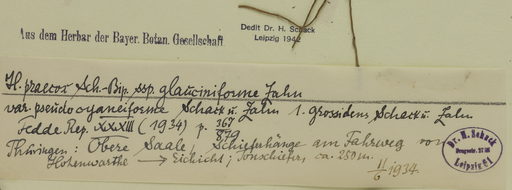 Aus dem Herbar der Bayer. Botan. Gesellschaft.
Dedit Dr. H. Schack
Leipzig 1942
H. praecox Sch.-Bip. ssp. glauciniforme Zahn
var. pseudocyaneiforme Schack u. Zahn 1. grossidens Schack u. Zahn
Fedde Rep. XXXIII (1934) p. 367/879
Thüringen: Obere Saale, Schieferhänge am Fahrweg von
Hohenwarthe → Eichicht; Tonschiefer, ca. 250 m.
1934.
Dr. H. Schack
Leipzig